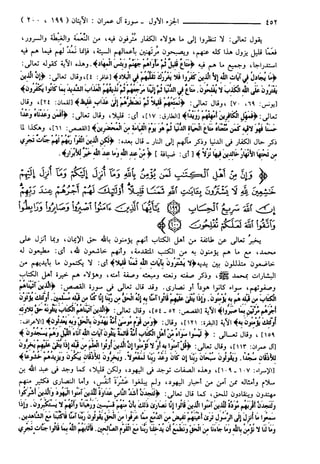 ٤٥٢ الجزء الأول - سورة آل عمران : الآيتان ( ١٩٩ ، ٢٠٠ )
يقول تعالى : لا تنظروا إلى ما هؤلاء الكفار مُترفون فيه، من النّعْمَة والغِبْطة والسرور،
فعمّا قليل يزول هذا كله عنهم، ويصبحون مُرتهنين بأعمالهم السيئة، فإنما نَمُدّ لهم فيما هم فيه
استدراجا، وجميع ما هم فيه ﴿مَتَاعٌ قَلِيلٌ ثُمَّ مَأْوَاهُمْ جَهَنَّمُ وَبِئْسَ الْمِهَادُ﴾. وهذه الآية كقوله تعالى :
﴿مَا يُجَادِلُ فِي آيَاتِ اللَّهِ إِلَّا الَّذِينَ كَفَرُوا فَلَا يَغْرُرْكَ تَقَلُّبُهُمْ فِي الْبِلَادِ﴾ [غافر : ٤]، وقال تعالى : ﴿إِنَّ الَّذِينَ
يَفْتَرُونَ عَلَى اللَّهِ الْكَذِبَ لَا يُفْلِحُونَ. مَتَاعٌ فِي الدُّنْيَا ثُمَّ إِلَيْنَا مَرْجِعُهُمْ ثُمَّ نُذِيقُهُمُ الْعَذَابَ الشَّدِيدَ بِمَا كَانُوا يَكْفُرُونَ﴾
[يونس : ٦٩، ٧٠]، وقال تعالى : ﴿نُمَتِّعُهُمْ قَلِيلًا ثُمَّ نَضْطَرُّهُمْ إِلَى عَذَابٍ غَلِيظٍ﴾ [لقمان : ٢٤]، وقال
تعالى : ﴿فَمَهِّلِ الْكَافِرِينَ أَمْهِلْهُمْ رُوَيْدًا﴾ [الطارق : ١٧]، أي : قليلا، وقال تعالى : ﴿أَفَمَنْ وَعَدْنَاهُ وَعْدًا
حَسَنًا فَهُوَ لَاقِيهِ كَمَنْ مَتَّعْنَاهُ مَتَاعَ الْحَيَاةِ الدُّنْيَا ثُمَّ هُوَ يَوْمَ الْقِيَامَةِ مِنَ الْمُحْضَرِينَ﴾ [القصص : ٦١]، وهكذا لما
ذكر حال الكفار في الدنيا وذكر مآلهم إلى النار - قال بعده : ﴿لَكِنِ الَّذِينَ اتَّقَوْا رَبَّهُمْ لَهُمْ جَنَّاتٌ تَجْرِي
مِنْ تَحْتِهَا الْأَنْهَارُ خَالِدِينَ فِيهَا نُزُلًا﴾ [ أي : ضيافة ] ﴿مِنْ عِنْدِ اللَّهِ وَمَا عِنْدَ اللَّهِ خَيْرٌ لِلْأَبْرَارِ﴾.
﴿ وَإِنَّ مِنْ أَهْلِ الْكِتَابِ لَمَنْ يُؤْمِنُ بِاللَّهِ وَمَا أُنْزِلَ إِلَيْكُمْ وَمَا أُنْزِلَ إِلَيْهِمْ
خَاشِعِينَ لِلَّهِ لَا يَشْتَرُونَ بِآيَاتِ اللَّهِ ثَمَنًا قَلِيلًا أُولَئِكَ لَهُمْ أَجْرُهُمْ عِنْدَ رَبِّهِمْ
إِنَّ اللَّهَ سَرِيعُ الْحِسَابِ (١٩٩) يَا أَيُّهَا الَّذِينَ آمَنُوا اصْبِرُوا وَصَابِرُوا وَرَابِطُوا
وَاتَّقُوا اللَّهَ لَعَلَّكُمْ تُفْلِحُونَ (٢٠٠) ﴾
يخبرُ تعالى عن طائفة من أهل الكتاب أنهم يؤمنون بالله حق الإيمان، وبما أنزل على
محمد، مع ما هم يؤمنون به من الكتب المتقدمة، وأنهم خاشعون لله، أي : مطيعون له
خاضعون متذللون بين يديه ﴿لَا يَشْتَرُونَ بِآيَاتِ اللَّهِ ثَمَنًا قَلِيلًا﴾، أي : لا يكتمون ما بأيديهم من
البشارات بمحمد ﷺ، وذكر صفته ونعته ومبعثه وصفة أمته، وهؤلاء هم خيرة أهل الكتاب
وصفوتهم، سواء كانوا هودًا أو نصارى. وقد قال تعالى في سورة القصص : ﴿الَّذِينَ آتَيْنَاهُمُ
الْكِتَابَ مِنْ قَبْلِهِ هُمْ بِهِ يُؤْمِنُونَ. وَإِذَا يُتْلَى عَلَيْهِمْ قَالُوا آمَنَّا بِهِ إِنَّهُ الْحَقُّ مِنْ رَبِّنَا إِنَّا كُنَّا مِنْ قَبْلِهِ مُسْلِمِينَ. أُولَئِكَ يُؤْتَوْنَ
أَجْرَهُمْ مَرَّتَيْنِ بِمَا صَبَرُوا﴾ [الآيات : ٥٢ - ٥٤]، وقال تعالى : ﴿الَّذِينَ آتَيْنَاهُمُ الْكِتَابَ يَتْلُونَهُ حَقَّ تِلَاوَتِهِ
أُولَئِكَ يُؤْمِنُونَ بِهِ﴾ الآية [البقرة : ١٢١]، وقال تعالى : ﴿وَمِنْ قَوْمِ مُوسَى أُمَّةٌ يَهْدُونَ بِالْحَقِّ وَبِهِ يَعْدِلُونَ﴾ [الأعراف :
١٥٩]، وقال تعالى : ﴿لَيْسُوا سَوَاءً مِنْ أَهْلِ الْكِتَابِ أُمَّةٌ قَائِمَةٌ يَتْلُونَ آيَاتِ اللَّهِ آنَاءَ اللَّيْلِ وَهُمْ يَسْجُدُونَ﴾
[آل عمران : ١١٣]، وقال تعالى : ﴿قُلْ آمِنُوا بِهِ أَوْ لَا تُؤْمِنُوا إِنَّ الَّذِينَ أُوتُوا الْعِلْمَ مِنْ قَبْلِهِ إِذَا يُتْلَى عَلَيْهِمْ يَخِرُّونَ
لِلْأَذْقَانِ سُجَّدًا. وَيَقُولُونَ سُبْحَانَ رَبِّنَا إِنْ كَانَ وَعْدُ رَبِّنَا لَمَفْعُولًا. وَيَخِرُّونَ لِلْأَذْقَانِ يَبْكُونَ وَيَزِيدُهُمْ خُشُوعًا﴾
[الإسراء : ١٠٧ - ١٠٩]، وهذه الصفات توجد في اليهود، ولكن قليلا، كما وجد في عبد الله بن
سلام وأمثاله ممن آمن من أحبار اليهود، ولم يبلغوا عَشْرَةَ أنفُس، وأما النصارى فكثير منهم
مهتدون وينقادون للحق، كما قال تعالى : ﴿لَتَجِدَنَّ أَشَدَّ النَّاسِ عَدَاوَةً لِلَّذِينَ آمَنُوا الْيَهُودَ وَالَّذِينَ أَشْرَكُوا
وَلَتَجِدَنَّ أَقْرَبَهُمْ مَوَدَّةً لِلَّذِينَ آمَنُوا الَّذِينَ قَالُوا إِنَّا نَصَارَى ذَلِكَ بِأَنَّ مِنْهُمْ قِسِّيسِينَ وَرُهْبَانًا وَأَنَّهُمْ لَا يَسْتَكْبِرُونَ. وَإِذَا
سَمِعُوا مَا أُنْزِلَ إِلَى الرَّسُولِ تَرَى أَعْيُنَهُمْ تَفِيضُ مِنَ الدَّمْعِ مِمَّا عَرَفُوا مِنَ الْحَقِّ يَقُولُونَ رَبَّنَا آمَنَّا فَاكْتُبْنَا مَعَ الشَّاهِدِينَ.
وَمَا لَنَا لَا نُؤْمِنُ بِاللَّهِ وَمَا جَاءَنَا مِنَ الْحَقِّ وَنَطْمَعُ أَنْ يُدْخِلَنَا رَبُّنَا مَعَ الْقَوْمِ الصَّالِحِينَ. فَأَثَابَهُمُ اللَّهُ بِمَا قَالُوا جَنَّاتٍ تَجْرِي